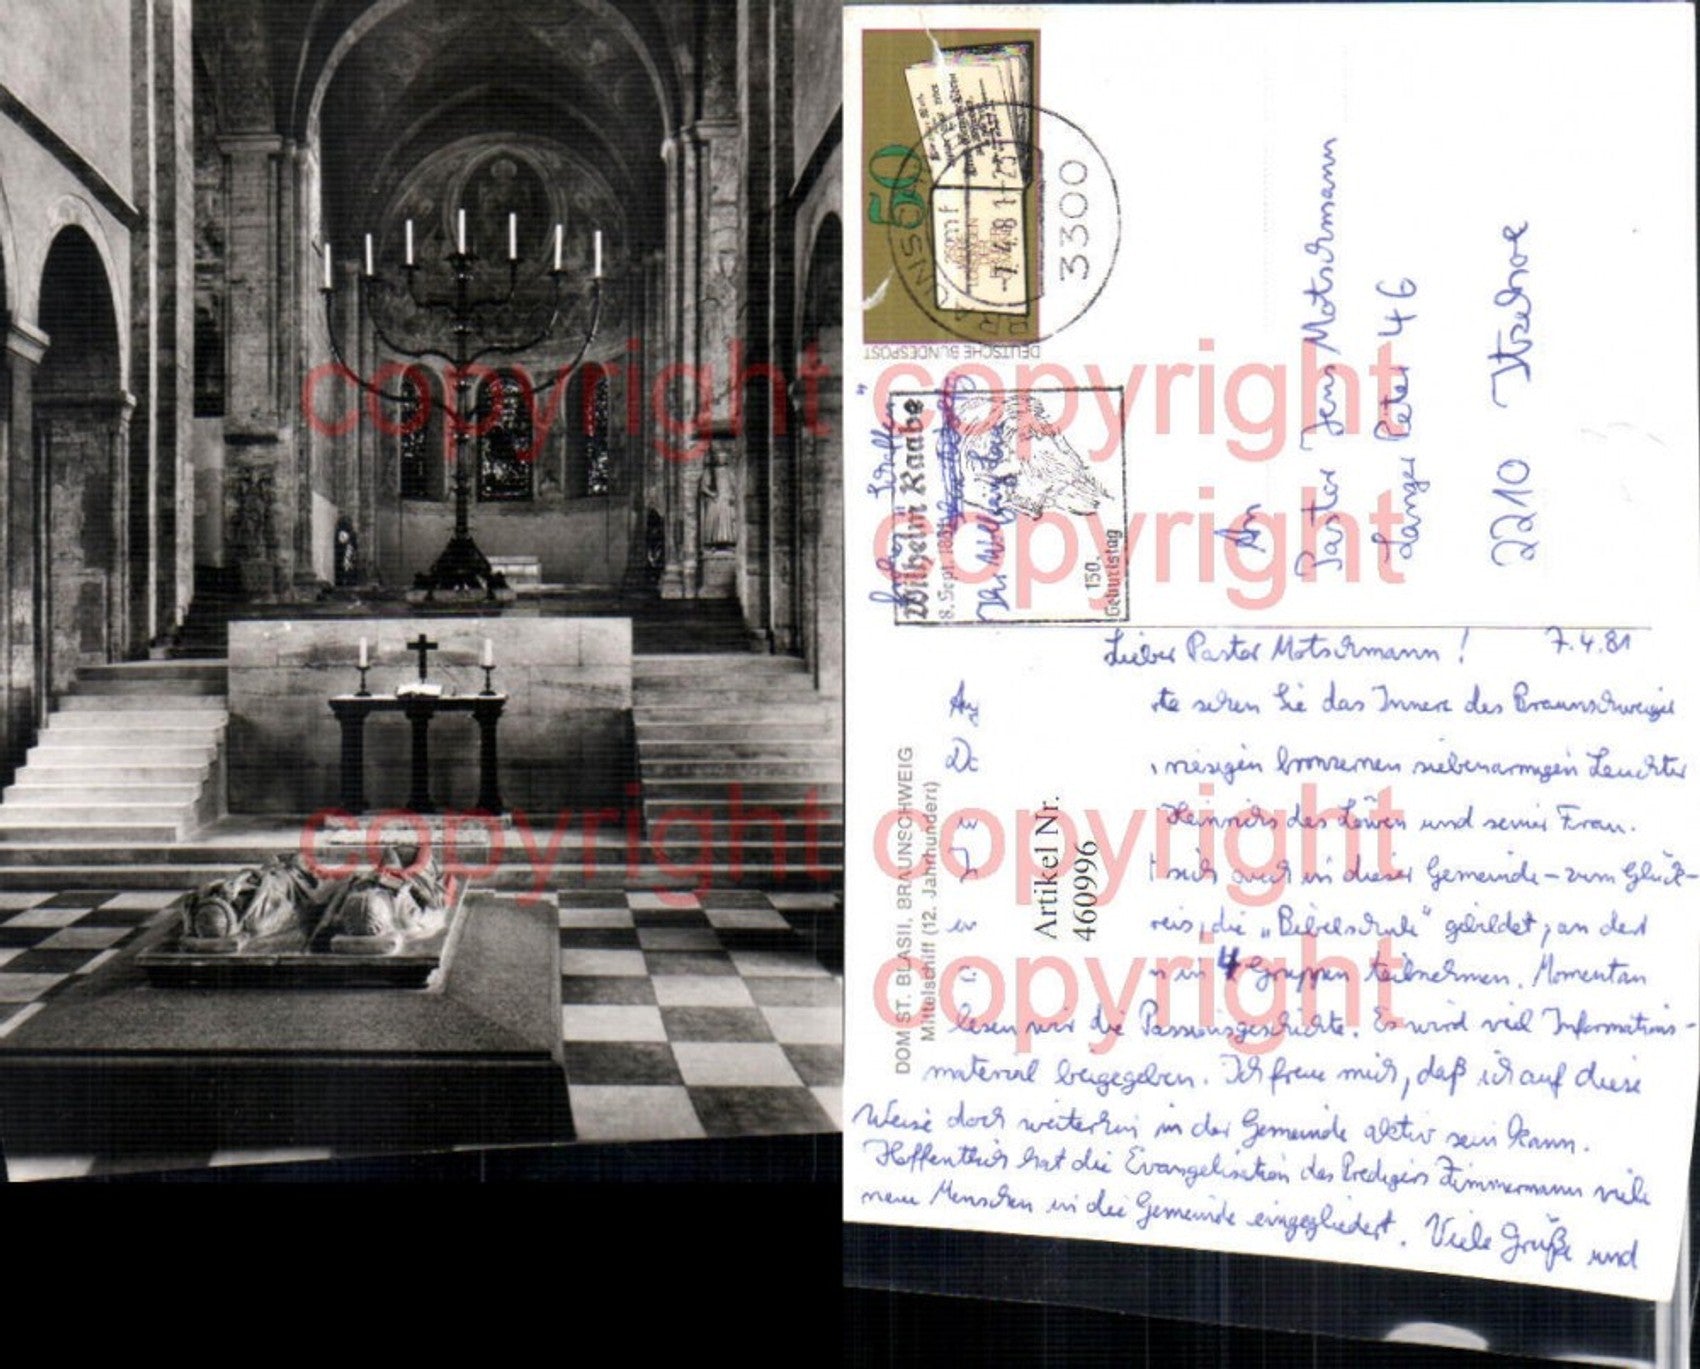 DEUTSCHE BUNDESPOST
50
3300
-7.4.81-23
Wilhelm Raabe
8. Sept. 1831
150.
Geburtstag
frohes Schaffen"
Ihr
An
Pastor Jens Motschmann
Langer Peter 46
2210 Itzehoe
Lieber Pastor Motschmann! 7.4.81
te sehen Sie das Innere des Braunschweiger
riesigen bronzenen siebenarmigen Leuchter
Heinrichs des Löwen und seiner Frau.
sich auch in dieser Gemeinde - zum Glück -
reis, die "Bibelschule" gebildet, an der
in 4 Gruppen teilnehmen. Momentan
lesen wir die Passionsgeschichte. Es wird viel Informations-
material beigegeben. Ich freue mich, daß ich auf diese
Weise doch weiterhin in der Gemeinde aktiv sein kann.
Hoffentlich hat die Evangelisation des Predigers Zimmermann viele
neue Menschen in die Gemeinde eingegliedert. Viele Grüße und
DOM ST. BLASII, BRAUNSCHWEIG
Mittelschiff (12. Jahrhundert)
Artikel Nr.
460996
copyright
copyright
copyright
copyright
copyright
copyright